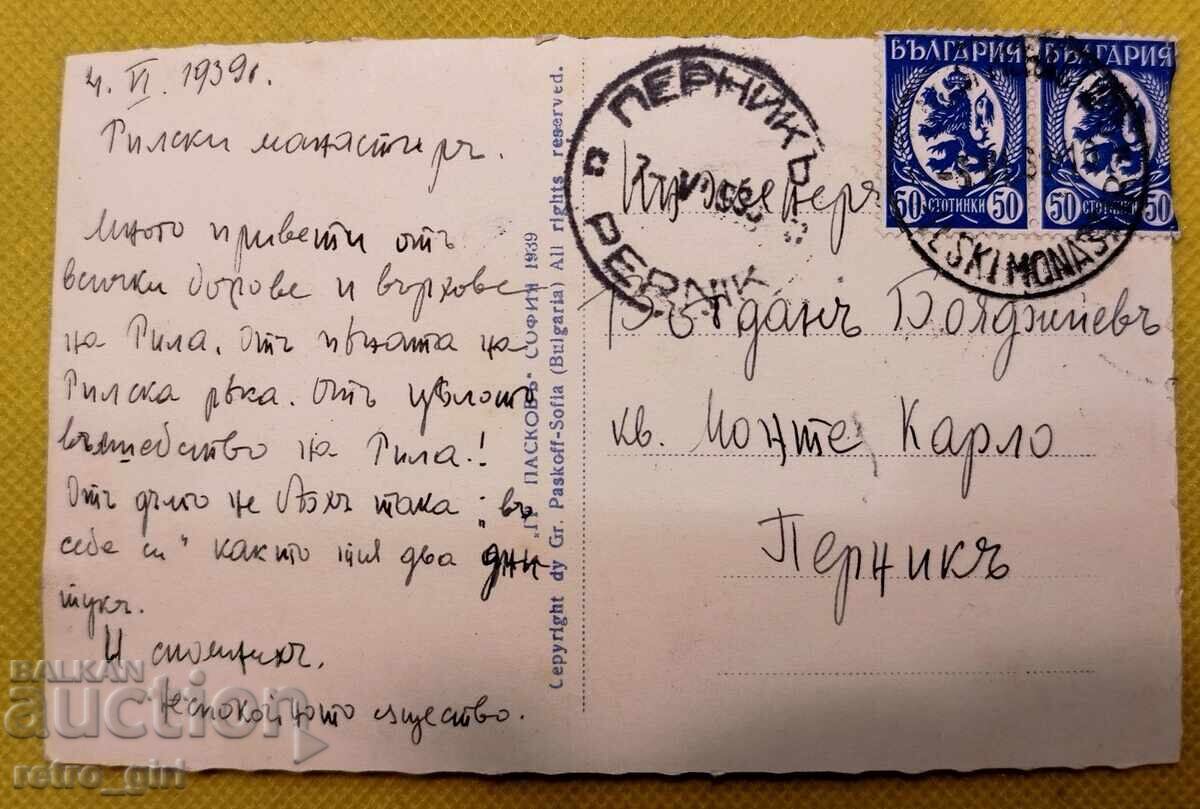 4. VI 1939г.
Рилски манастиръ.
Много привети отъ
всички борове и върхове
на Рила. Отъ пѣната на
Рилска рѣка. Отъ цѣлото
вълшебство на Рила!
Отъ дълго не бѣхъ така „въ
себе си" както тия два дни
тукъ.
И спомнихъ.
Неспокойното сѫщество.
"ГР. ПАСКОВЪ" СОФИЯ 1939
Cepyright dy Gr. Paskoff-Sofia (Bulgaria) All rights reserved.
ПЕРНИКЪ
PERNIK
БЪЛГАРИЯ
50 СТОТИНКИ 50
БЪЛГАРИЯ
50 СТОТИНКИ 50
SKI MONAS
Инженеръ
Богданъ Бояджиевъ
кв. Монте Карло
Перникъ
BALKAN
auction
retro_girl